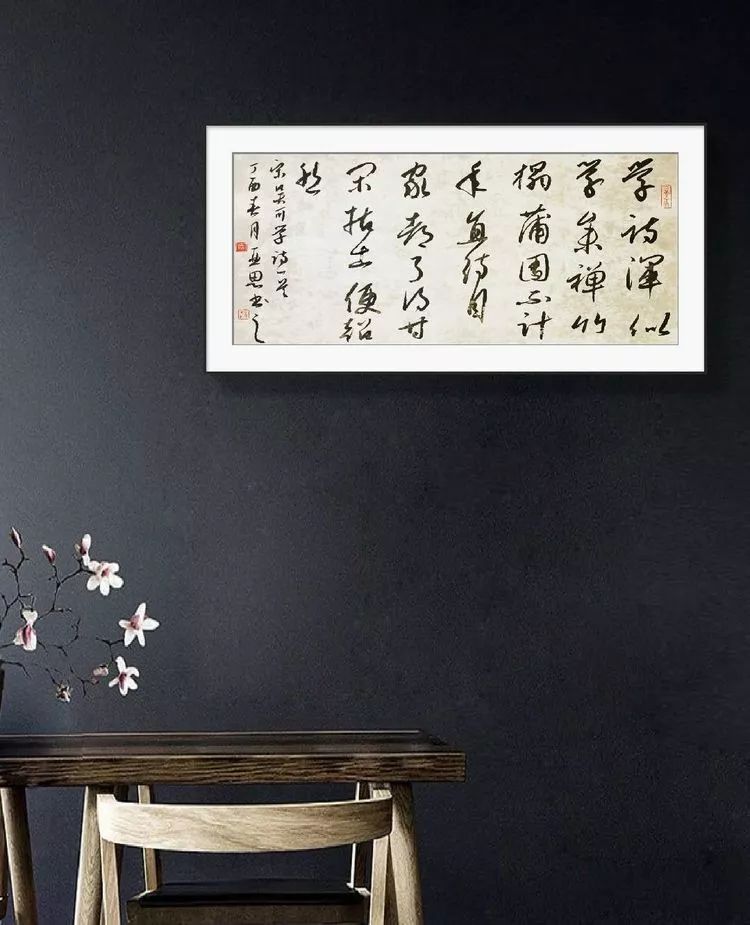 学诗浑似
学参禅竹
榻蒲團不计
年直待自
家都了得等
闲拈出便超
然
宋吴可学诗一首
丁酉春月亚思书之